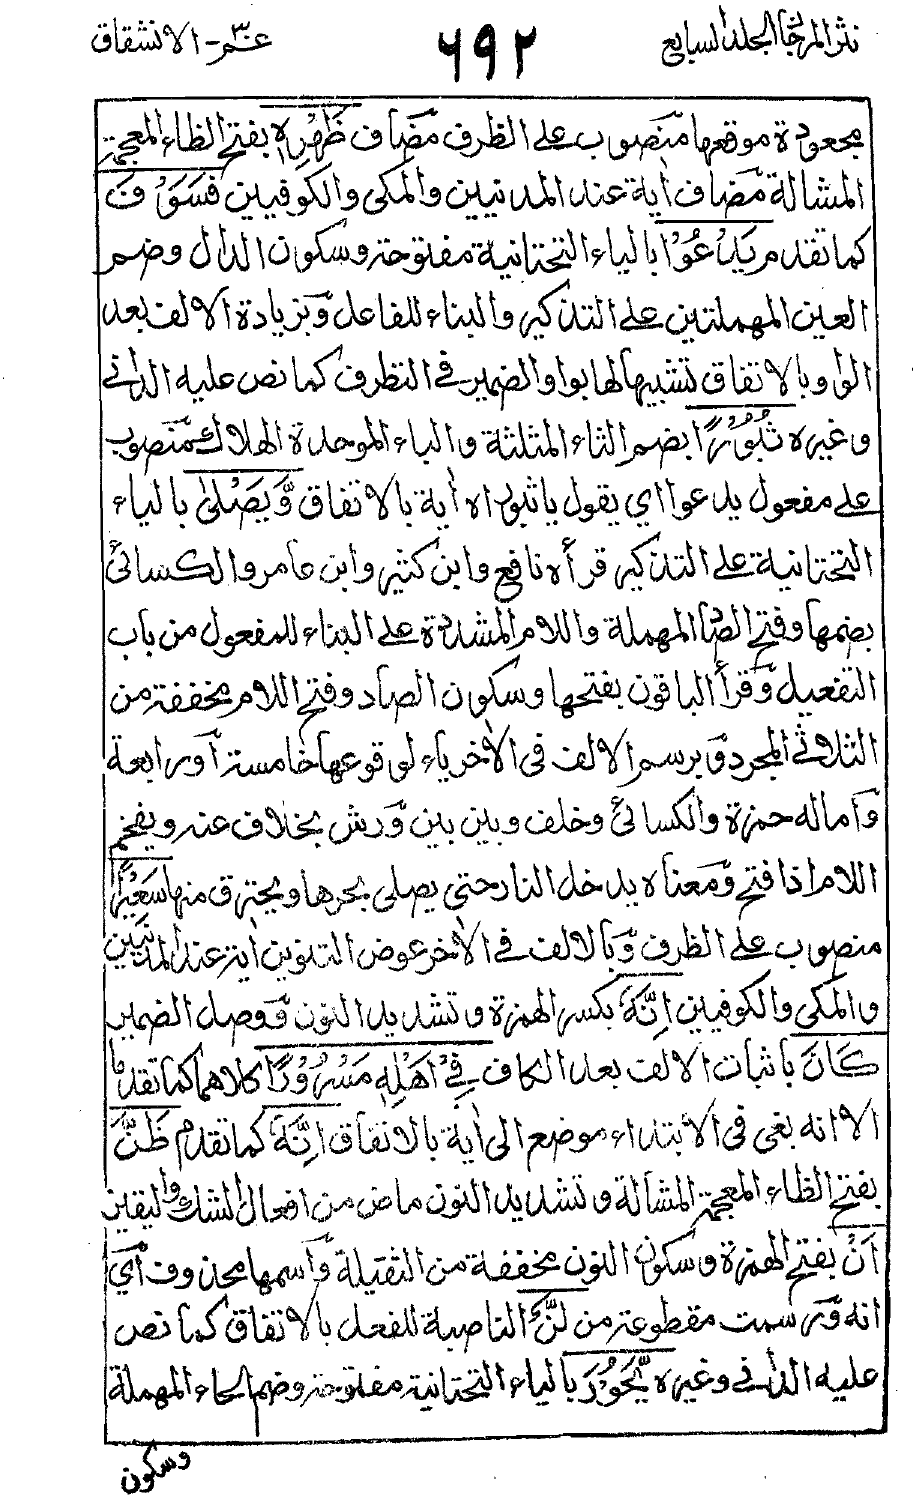 نثر المرجان الجلد السابع
٦٩٢
عم - الانشقاق
موقعها منصوب على الظرف مضاف ظَهْرِهٖ بفتح الظاء المعجمة
المشالة مضاف اٰية عند المدنيين والمكى والكوفيين فَسَوْفَ
كما تقدم يَدْعُوْا بالياء التحتانية مفتوحة وسكون الدال وضم
العين المهملتين على التذكير والبناء للفاعل وبزيادة الالف بعد
الواو بالاتفاق تشبيها لها بواو الضمير فى التطرف كما نص عليه الدانى
وغيره ثُبُوْرًا بضم الثاء المثلثة والباء الموحدة الهلاك منصوب
على مفعول يدعوا اي يقول يا ثبوراه اٰية بالاتفاق وَّيَصْلٰى بالياء
التحتانية على التذكير قرأه نافع وابن كثير وابن عامر والكسائى
بضمها وفتح الصاد المهملة واللام المشددة على البناء للمفعول من باب
التفعيل وقرأ الباقون بفتحها وسكون الصاد وفتح اللام مخففة من
الثلاثى المجرد وبرسم الالف فى الاٰخر ياء لوقوعها خامسة أو رابعة
وأماله حمزة والكسائى وخلف وبين بين ورش بخلاف عنه ويفخم
اللام اذا فتح ومعناه يدخل النار حتى يصلى بحرها ويحترق منها سَعِيْرًا
منصوب على الظرف وبالالف فى الاٰخر عوض التنوين اٰية عند المدنيين
والمكى والكوفيين اِنَّهٗ بكسر الهمزة وتشديد النون ووصل الضمير
كَانَ باثبات الالف بعد الكاف فِىْٓ اَهْلِهٖ مَسْرُوْرًا كلاهما كما تقدما
الا انه بغى فى الابتداء موضع الى اٰية بالاتفاق اِنَّهٗ كما تقدم ظَنَّ
بفتح الظاء المعجمة المشالة وتشديد النون ماض من افعال الشك واليقين
اَنْ بفتح الهمزة وسكون النون مخففة من الثقيلة واسمها محذوف أي
انه ورسمت مقطوعة من لَّنْ الناصبة للفعل بالاتفاق كما نص
عليه الدانى وغيره يَّحُوْرَ بالياء التحتانية مفتوحة وضم الحاء المهملة
وسكون